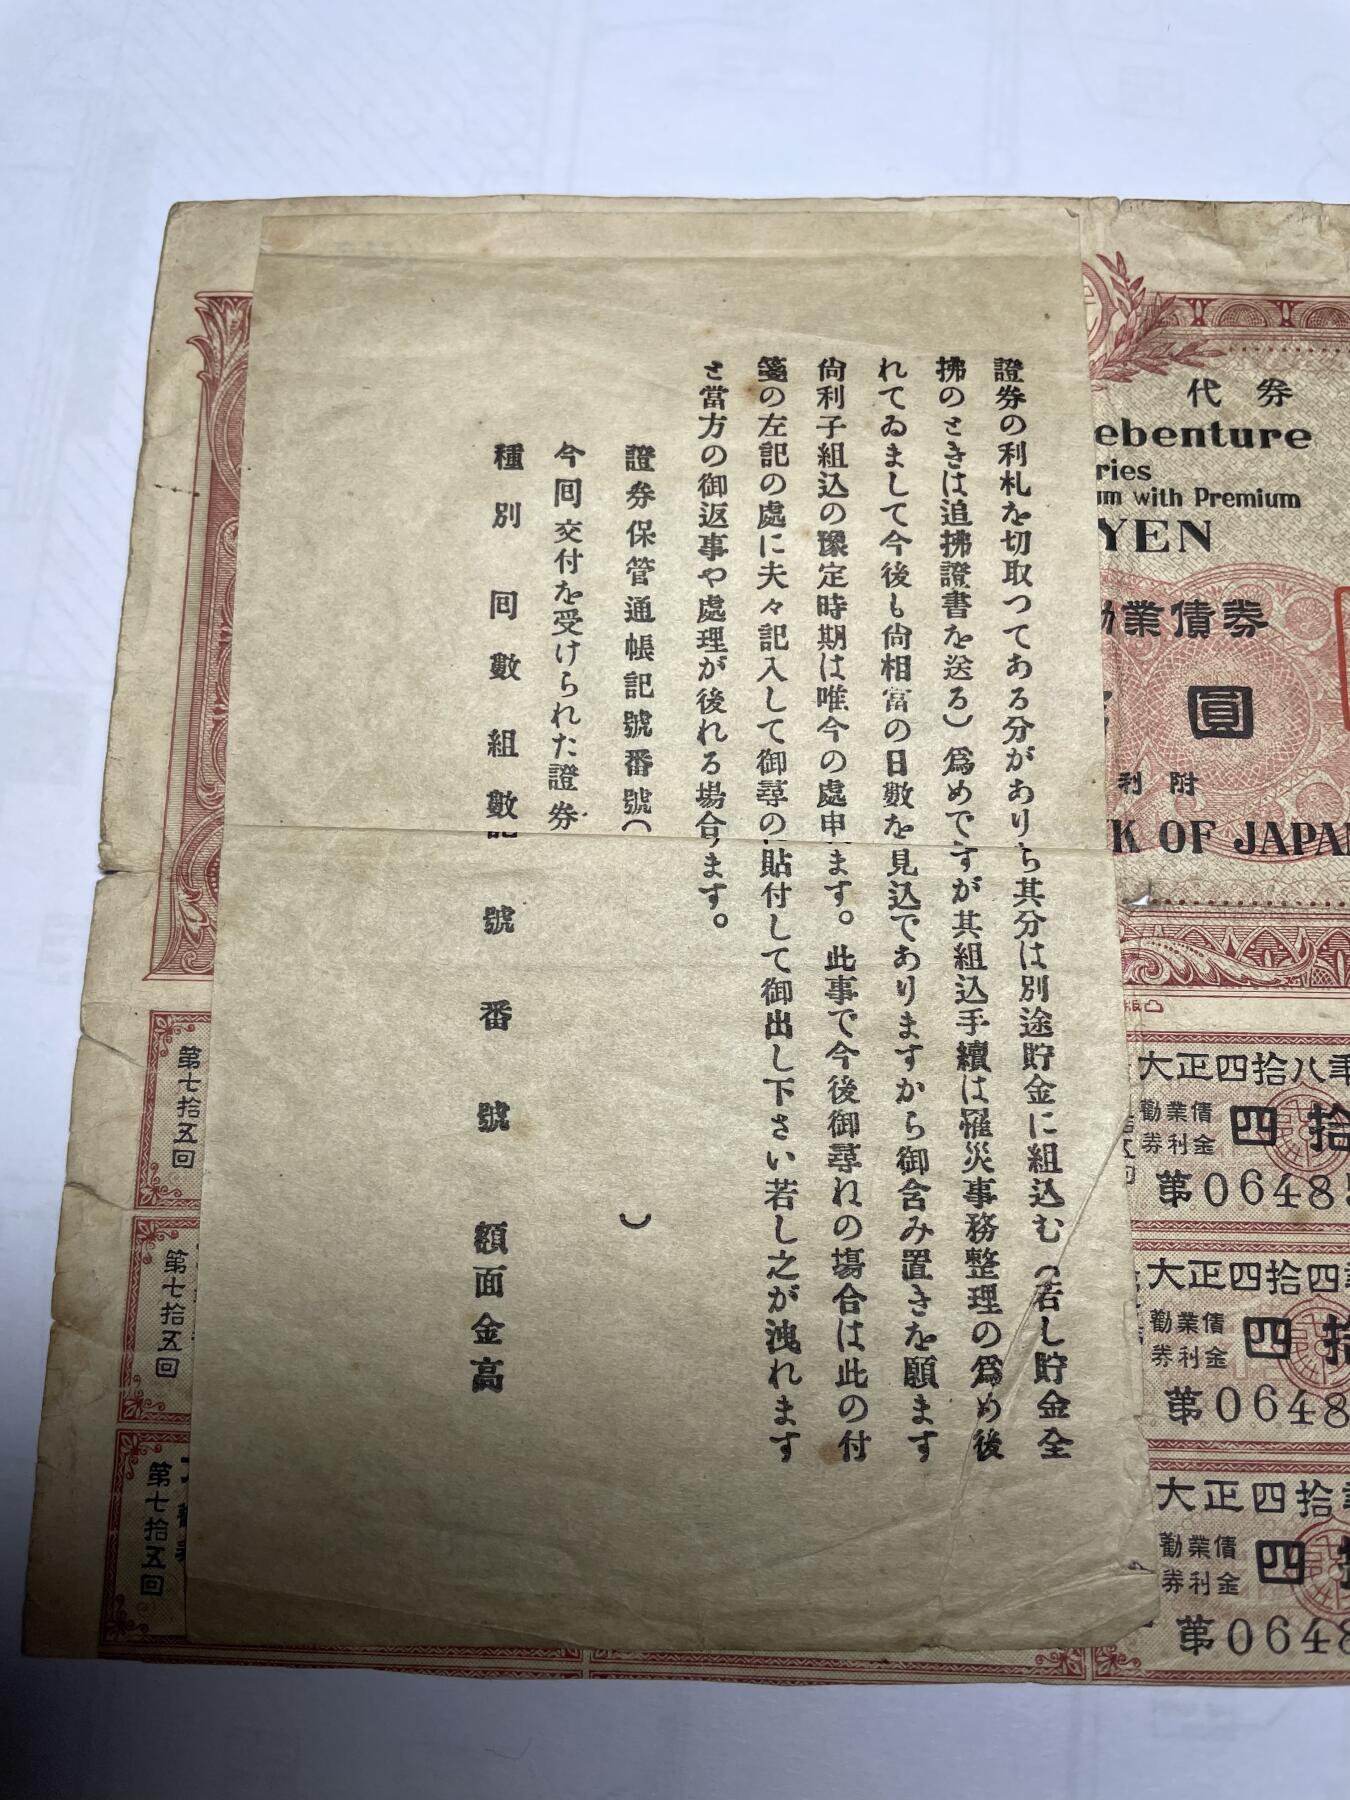 證券の利札を切取つてある分がありら其分は別途貯金に組込む(若し貯金全
拂のときは追拂證書を送る)爲めですが其組込手續は罹災事務整理の爲め後
れてゐまして今後も尙相當の日數を見込でありますから御含み置きを願ます
尙利子組込の豫定時期は唯今の處申ます。此事で今後御尋ねの場合は此の付
箋の左記の處に夫々記入して御尋の貼付して御出し下さい若し之が洩れます
と當方の御返事や處理が後れる場合ます。
證券保管通帳記號番號( )
今回交付を受けられた證券
種別 回數 組數 記號 番號 額面金高
代券
ebenture
ries
um with Premium
YEN
業債券
圓
利附
K OF JAPAN
大正四拾八年
勸業債
券利金
四拾
第0648
大正四拾四年
勸業債
券利金
四拾
第0648
大正四拾年
勸業債
券利金
四
第0648
第七拾五回
第七拾五回
第七拾五回